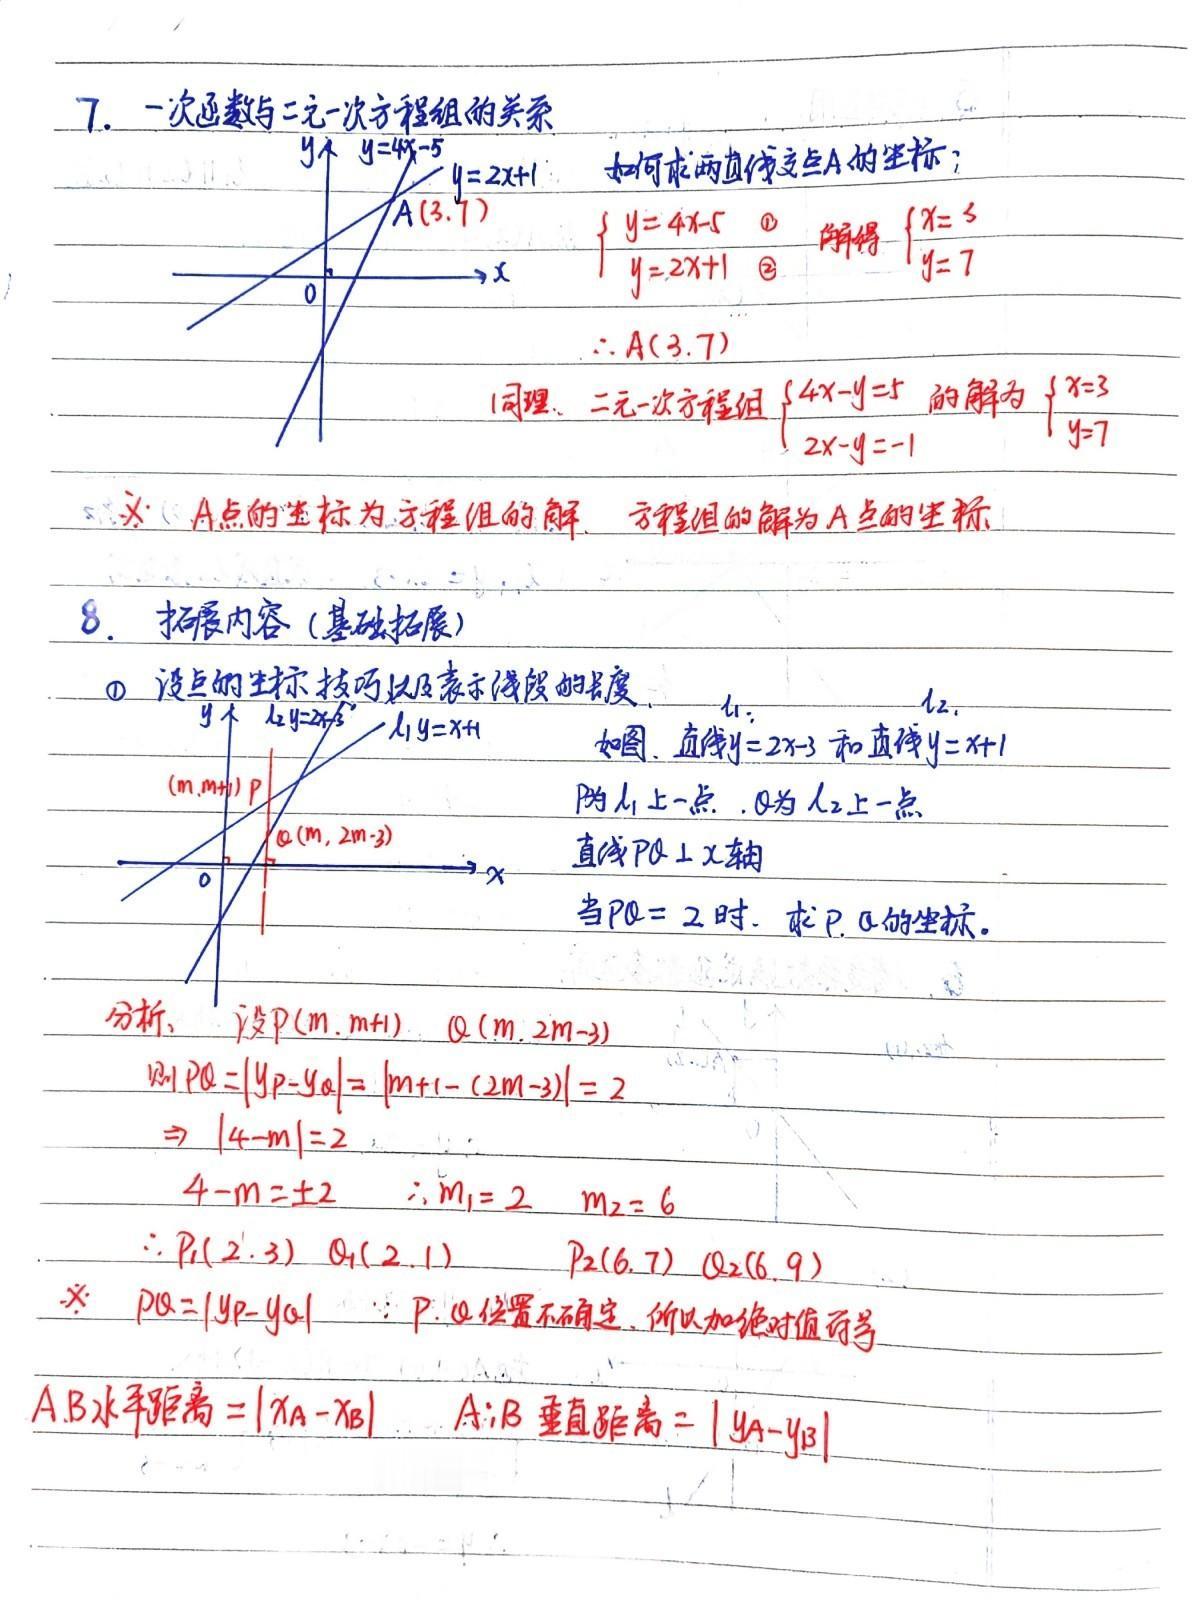 7. 一次函数与二元一次方程组的关系
y y=4x-5
y=2x+1
A(3.7)
x
0
如何求两直线交点A的坐标;
{ y=4x-5 ① 解得 { x=3
y=2x+1 ② y=7
∴A(3.7)
同理、二元一次方程组 { 4x-y=5 的解为 { x=3
2x-y=-1 y=7
※ A点的坐标为方程组的解. 方程组的解为A点的坐标
8. 拓展内容(基础拓展)
① 设点的坐标技巧以及表示线段的长度.
y l2 y=2x-3 l1 y=x+1
(m.m+1) P
Q(m, 2m-3)
x
0
l1: l2.
如图、直线y=2x-3 和直线y=x+1
P为l1上一点.Q为l2上一点
直线PQ⊥x轴
当PQ=2时.求P.Q的坐标。
分析、 设P(m.m+1) Q(m.2m-3)
则PQ=|yP-yQ|=|m+1-(2m-3)|=2
⇒ |4-m|=2
4-m=±2 ∴m1=2 m2=6
∴P1(2.3) Q1(2.1) P2(6.7) Q2(6.9)
※ PQ=|yP-yQ| ∵ P.Q位置不确定、所以加绝对值符号
A.B水平距离=|xA-xB| A;B垂直距离=|yA-yB|